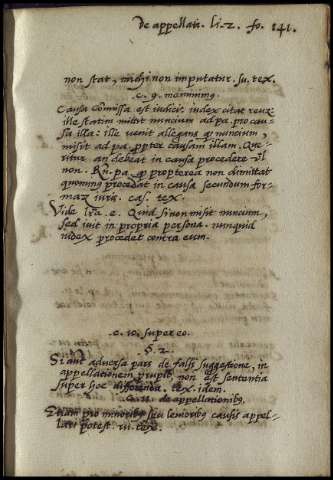 de appellati. li. 2. fo. 141.
non stat, mihi non imputatur. su. tex.
c. 9. meminimus.
Causa commissa est iudici: iudex citat reum
ille statim mittit nuncium ad pa. pro cau-
sa illa: ille venit allegans nuncium,
misit ad pa. propter causam illam. Que
ritur an debeat in causa procedere vel
non. Rn. pa. propterea non dimittat
quominus procedat in causa secundum for-
mam iuris. cas. tex.
Vide e. Quid si non misit nuncium,
sed ivit in propria persona. nunquid
iudex procedet contra eum.
c. 10. super eo.
§. 2.
Si aut adversa pars de falsi suggestione, in
appellationem non est sententia
super hoc differenda. tex. idem.
C. 11. de appellationibus.
Etiam pro minoribus seu levioribus causis appel-
lari potest. ut. tex.